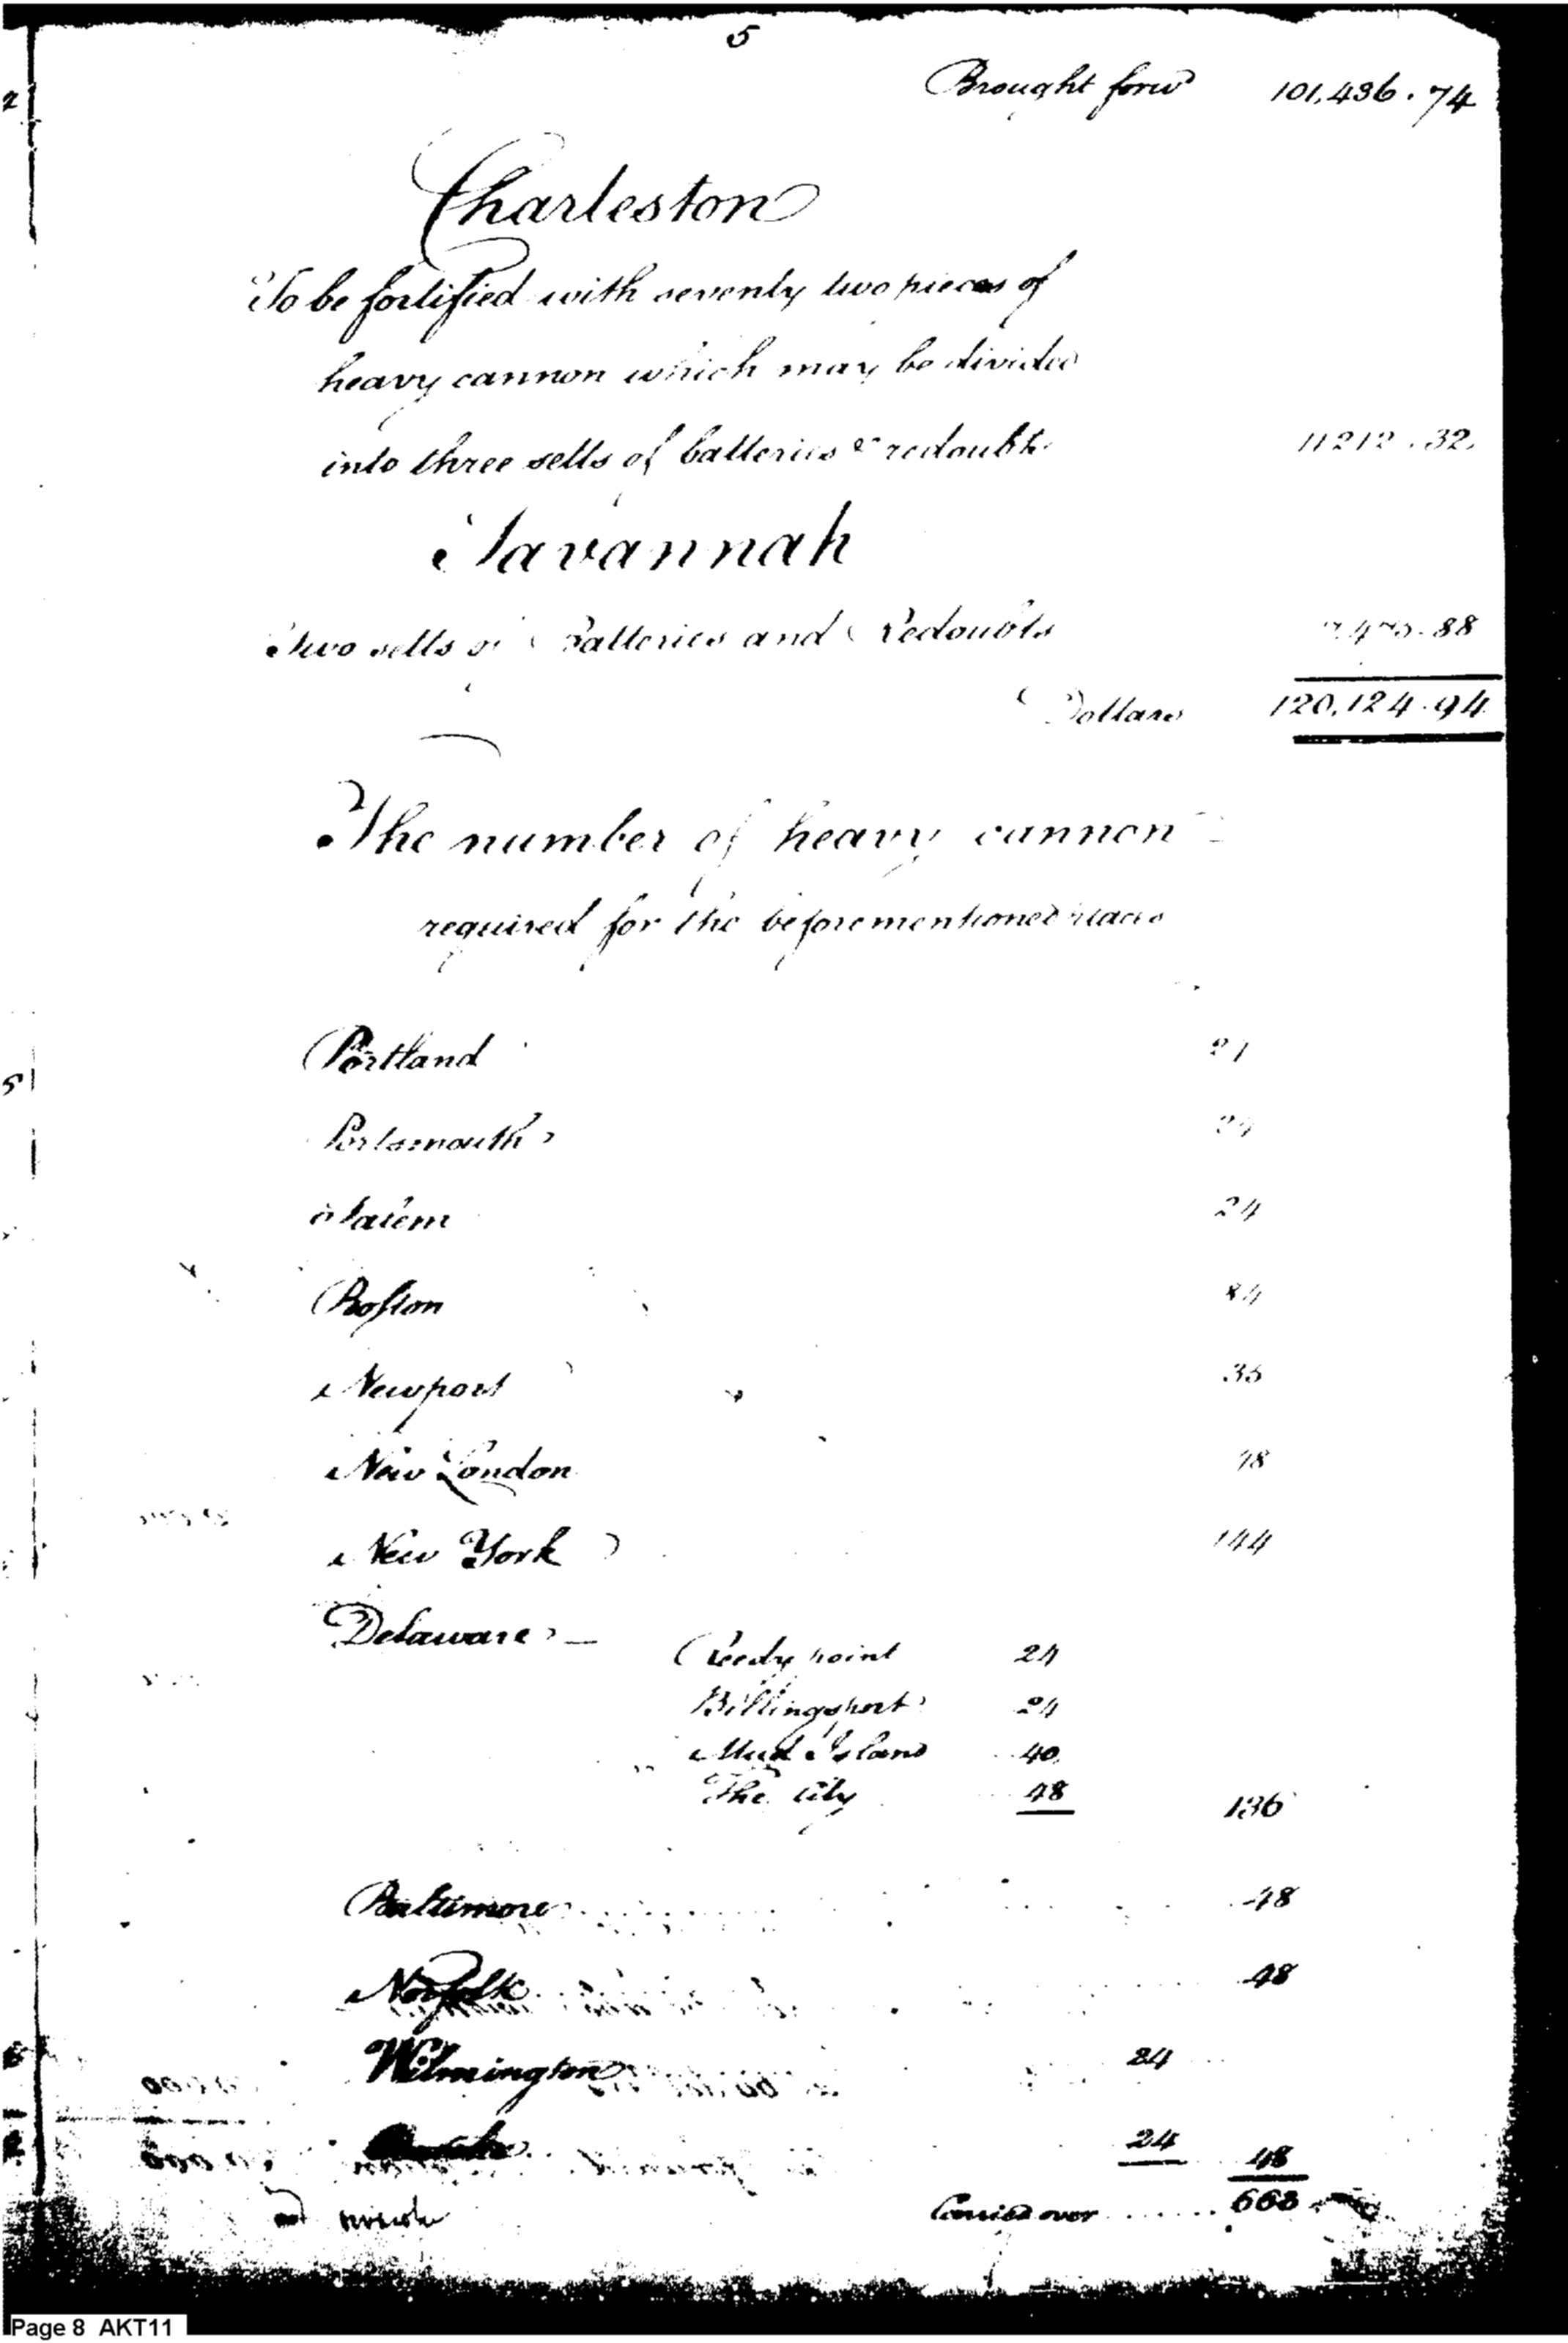 5
Brought forw^d 101,436.74
Charleston
To be fortified with seventy two pieces of
heavy cannon which may be divided
into three setts of batteries & redoubts 11212.32
Savannah
Two setts of Batteries and Redoubts .88
Dollars 120,124.94
The number of heavy cannon
required for the beforementioned places
Portland
Portsmouth 24
Salem 24
Boston 84
Newport
New London 48
New York 144
Delaware
Reedy point 24
Billingsport 24
Mud Island 40
The City 48 136
Baltimore 48
Norfolk 48
Wilmington 24
24 48
Carried over 663
Page 8 AKT11